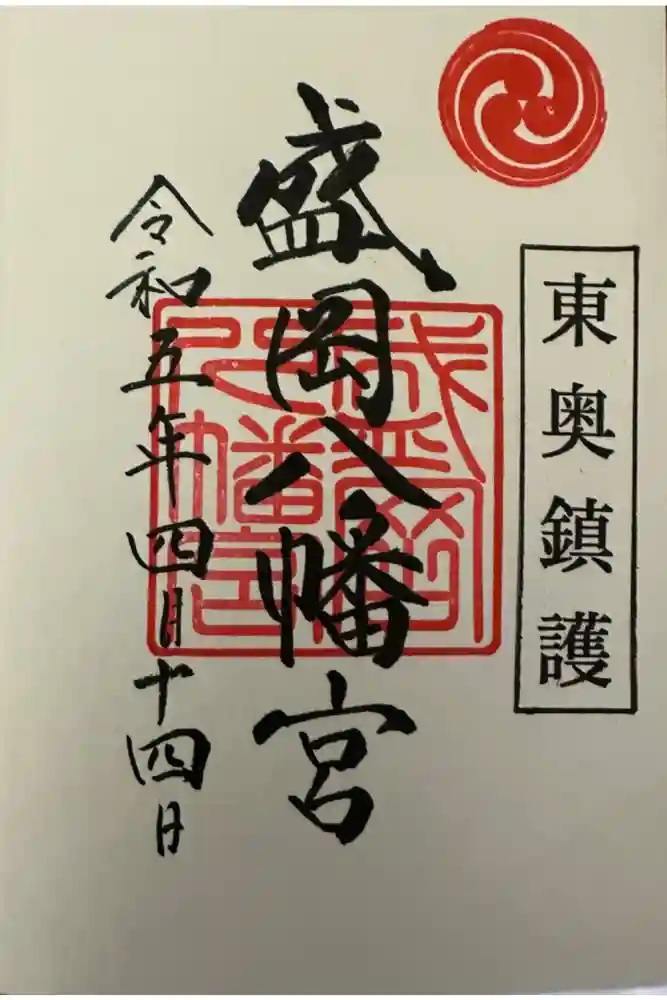 東奥鎮護
盛岡八幡宮
盛岡八幡宮
令和五年四月十四日